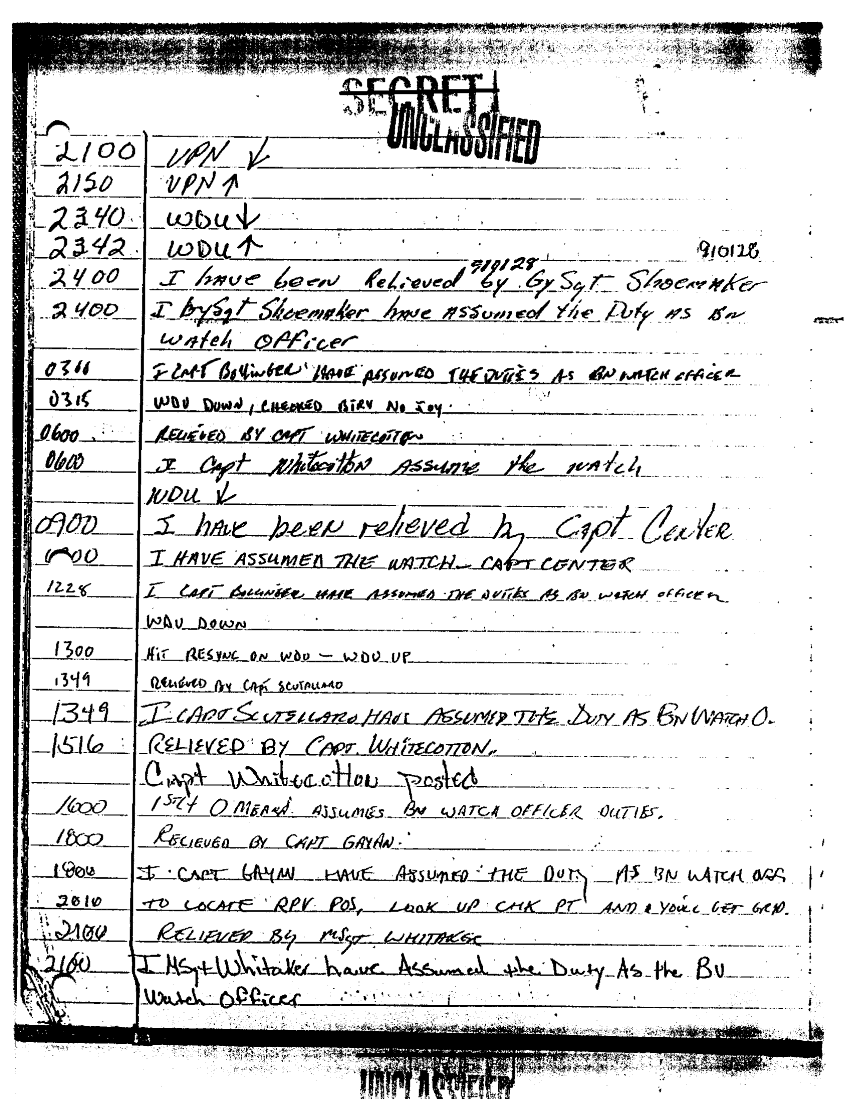 SECRET
UNCLASSIFIED
2100 VPN ↓
2150 VPN ↑
2340 WDU ↓
2342 WDU ↑ 910128
910128
2400 I have been Relieved by GySgt Shoemaker
2400 I GySgt Shoemaker have Assumed the Duty As Bn
Watch Officer
I CAPT BOLLINGER HAVE ASSUMED THE DUTIES AS BN WATCH OFFICER
0315 WDU DOWN, CHECKED NO JOY.
0600 RELIEVED BY CAPT WHITECOTTON
0600 I Capt Whitecotton ASSUME the watch
WDU ↓
0900 I have been relieved by Capt Center
I HAVE ASSUMED THE WATCH - CAPT CENTER
1228 I CAPT BOLLINGER HAVE ASSUMED THE DUTIES AS BN WATCH OFFICER
WDU DOWN
1300 HIT RESYNC ON WDU - WDU UP
1349 RELIEVED BY CAPT
1349 I CAPT SCUTELLARO HAVE ASSUMED THE DUTY AS BN WATCH O.
1516 RELIEVED BY CAPT. WHITECOTTON.
Capt Whitecotton posted
1600 O MEARA ASSUMES BN WATCH OFFICER DUTIES.
1800 RELIEVED BY CAPT GAYAN.
1800 I CAPT GAYAN HAVE ASSUMED THE DUTY AS BN WATCH
2010 TO LOCATE RPV POS, LOOK UP CHK PT AND YOU'LL GET GRID.
2100 RELIEVED BY MSgt WHITAKER
2100 I MSgt Whitaker have Assumed the Duty As the BN
Watch Officer
UNCLASSIFIED